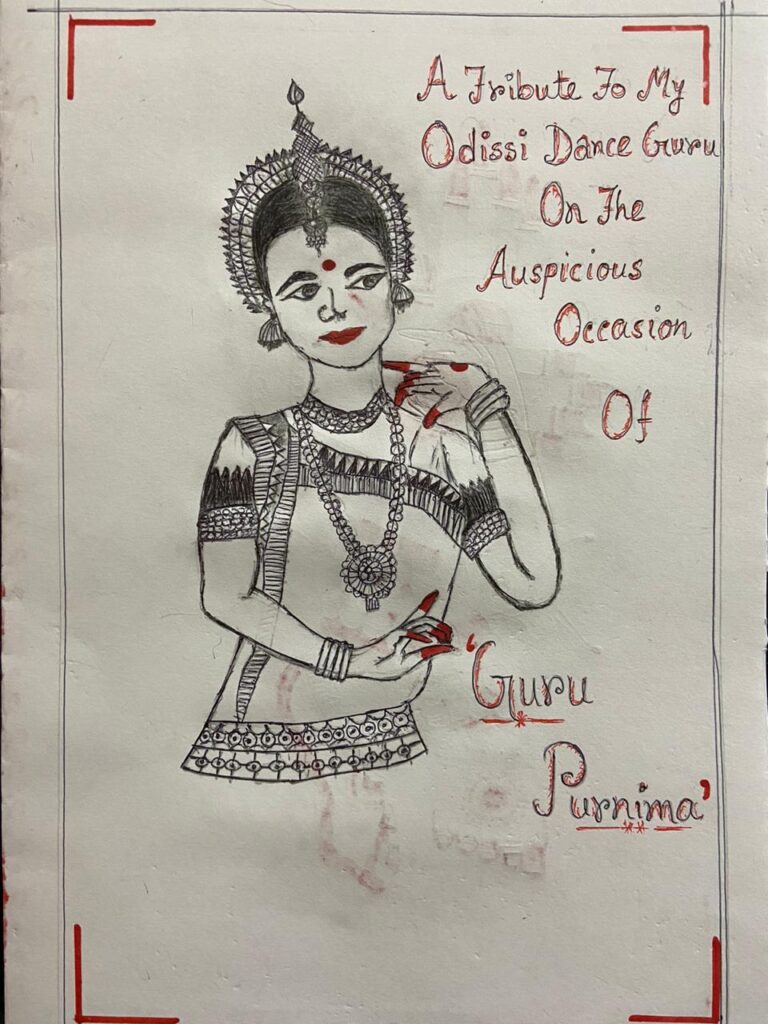 A Tribute To My
Odissi Dance Guru
On The
Auspicious
Occasion
Of
'Guru
Purnima'